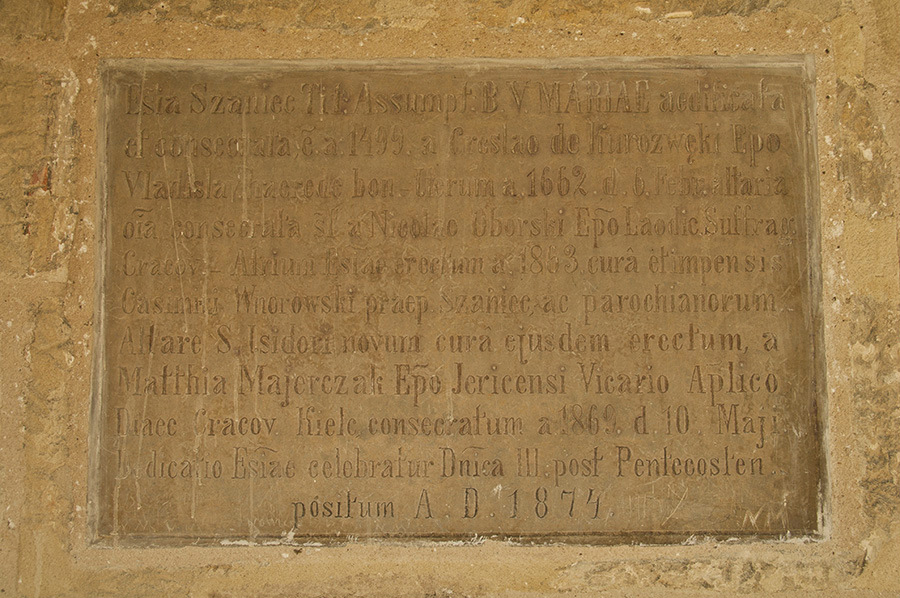 Esia Szaniec Tit. Assumpt. B. V. MARIAE aedificata
et consecrata, c̃. a. 1499. a Creslao de Kurozwęki Epo
Vladisla haerede bon. Iterum a. 1662. d. 6. Febr. altaria
oĩa consecrata st. a Nicolao Oborski Ep̃o Laodic. Suffrag
Cracov. - Atrium Esiae erectum a. 1853. curâ et impensis
Casimiri Wnorowski praep. Szaniec. ac parochianorum
Altare S. Isidori novum curâ ejusdem erectum, a
Matthia Majerczak Ep̃o Jericensi Vicario Ap̃lico
Diaec Cracov. Kielc. consecratum a 1869. d. 10. Maji
Dedicatio Es̃iae celebratur Dñica III. post Pentecosten
pósitum A. D. 1874.
NM